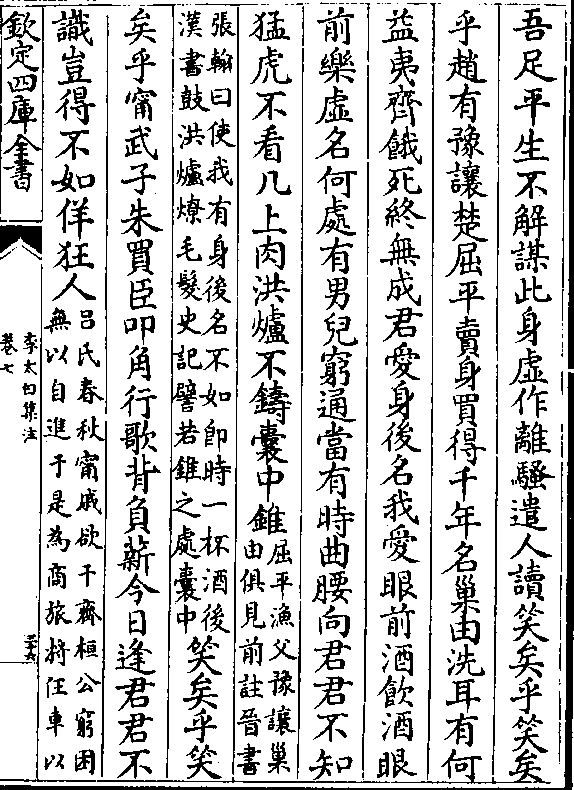 吾足平生不解謀此身虛作離騷遣人讀笑矣乎笑矣
乎趙有豫讓楚屈平賣身買得千年名巢由洗耳有何
益夷齊餓死終無成君愛身後名我愛眼前酒飲酒眼
前樂虛名何處有男兒窮通當有時曲腰向君君不知
猛虎不看几上肉洪爐不鑄囊中錐屈平漁父豫讓巢
由俱見前註晉書
張翰曰使我有身後名不如即時一杯酒後
漢書鼓洪爐燎毛髮史記譬若錐之處囊中笑矣乎笑
矣乎甯武子朱買臣叩角行歌背負薪今日逢君君不
識豈得不如佯狂人呂氏春秋甯戚欲干齊桓公窮困
無以自進于是為商旅將任車以
欽定四庫全書
李太白集注
卷七
三十六